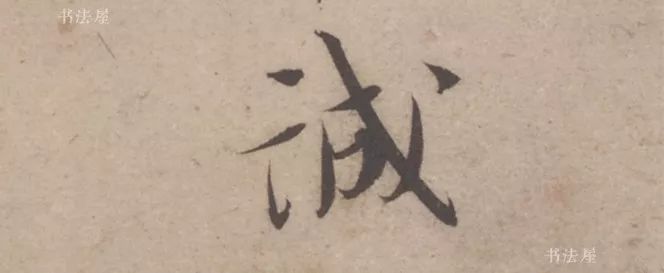 书法屋
誠
书法屋